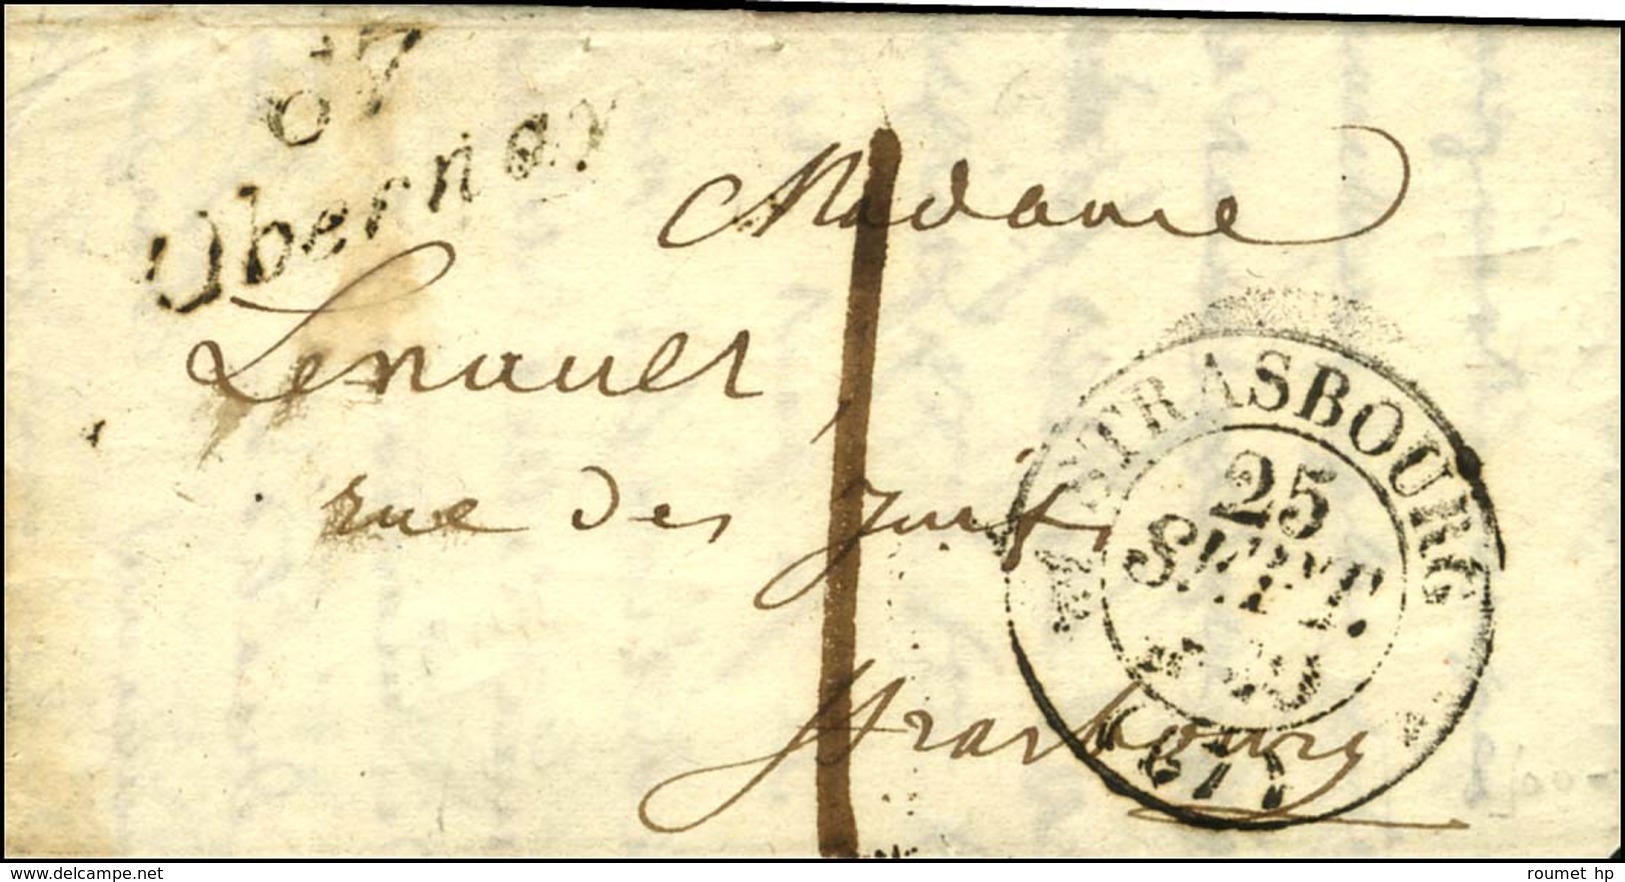 67
Obernay
Madame
Lenauer
rue des Juifs
Strasbourg
STRASBOURG
25
SEPT.
(67)
delcampe.net
roumet hp